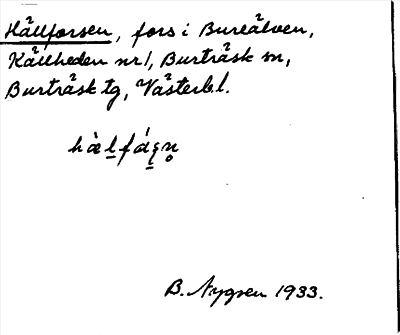 Hällforsen, fors i Bureälven,
Källheden nr 1, Burträsk sn,
Burträsk tg, Västerb. l.
B. Nygren 1933.